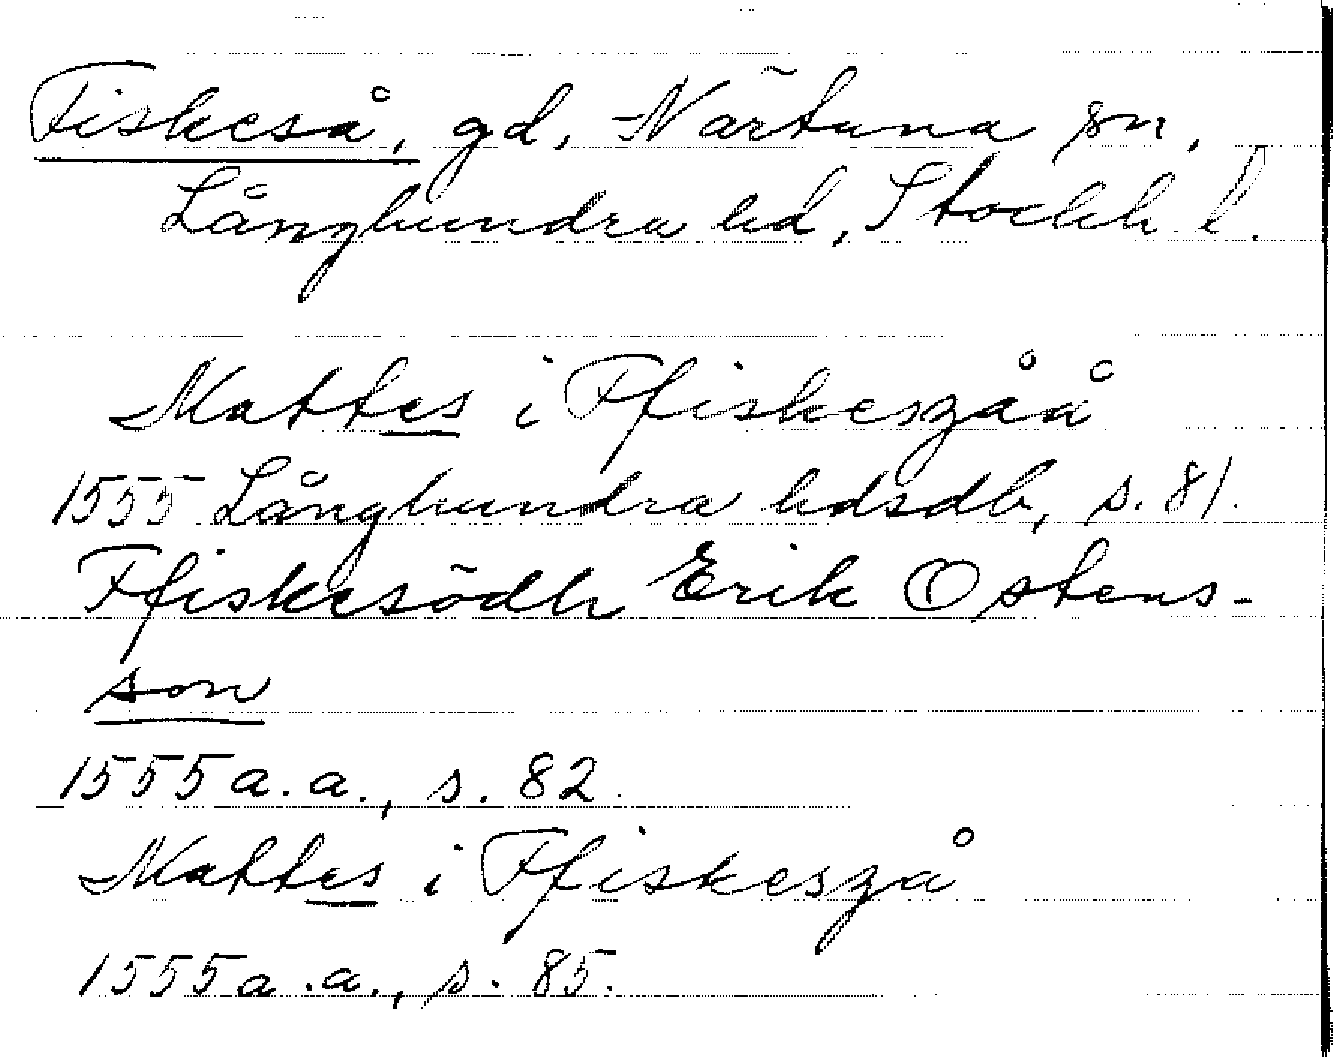 Fiskeså, gd, Närtuna sn,
Långhundra hd, Stockh. l.
Mattes i Ffiskeszåå
1555 Långhundra hdsdb, s. 81.
Ffiskesödh Erik Ostens-
son
1555 a.a., s. 82.
Mattes i Ffiskeszå
1555 a.a., s. 85.